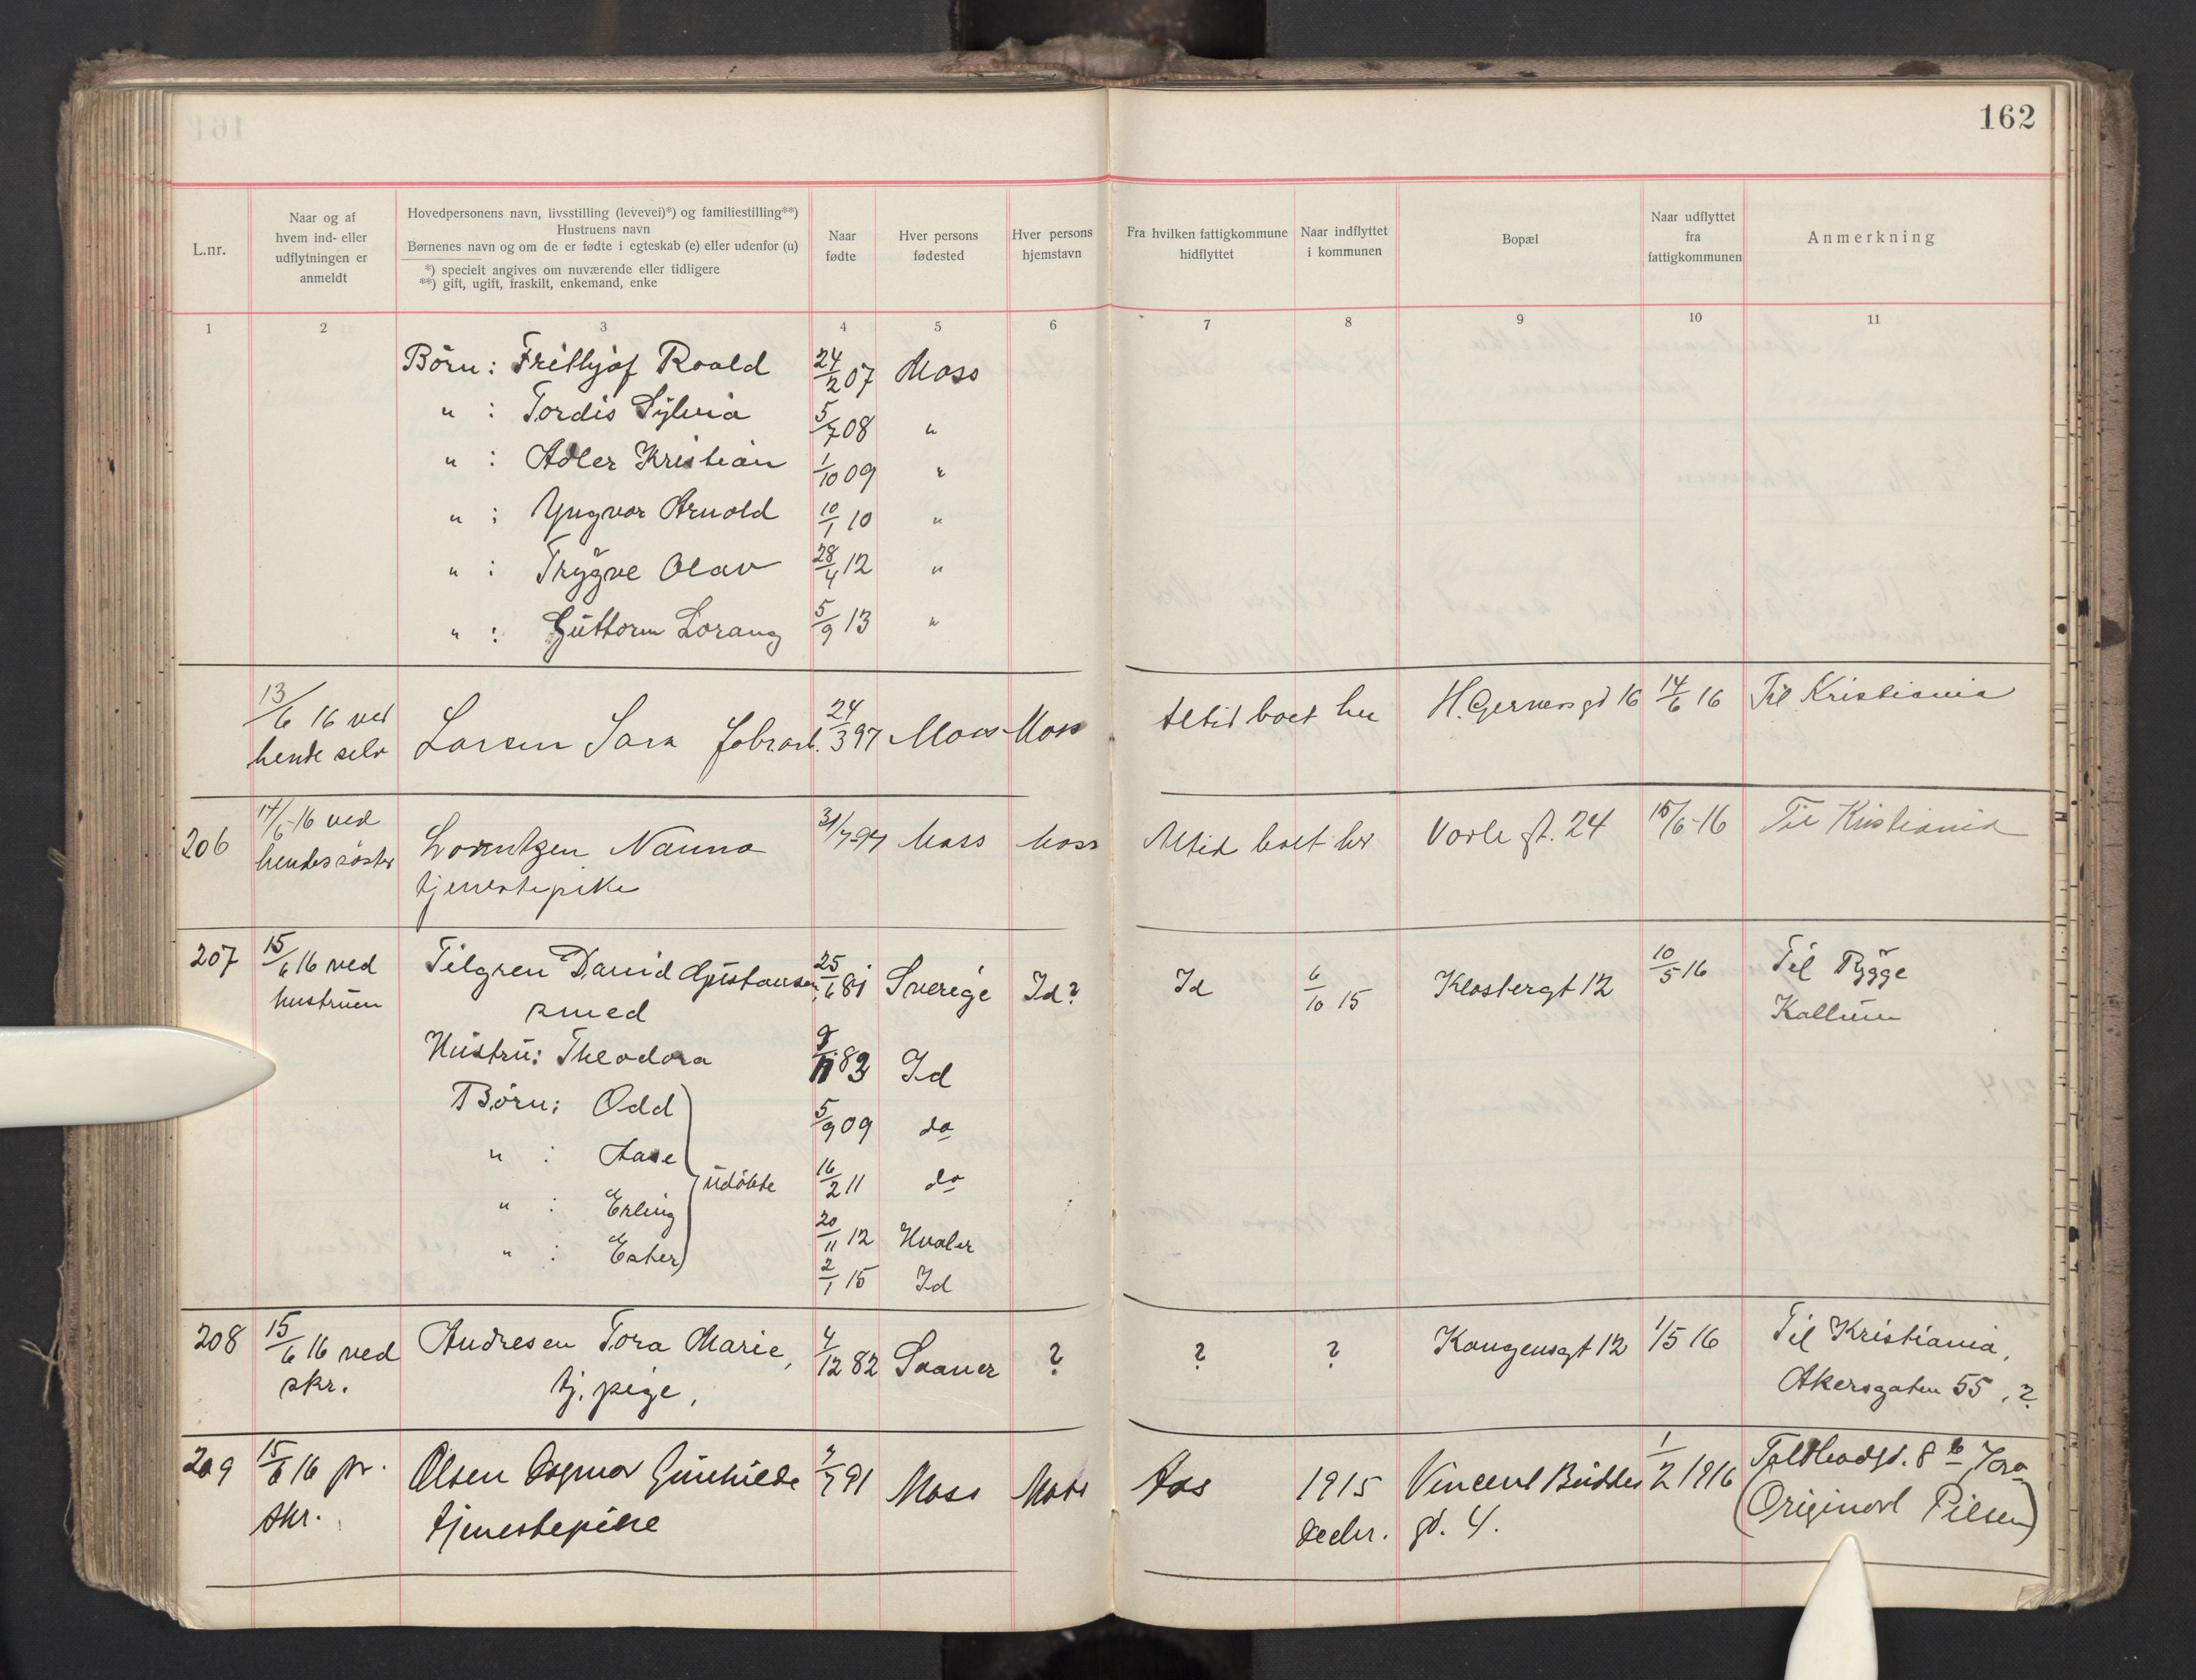 162
L.nr.
Naar og af
hvem ind- eller
udflytningen er
anmeldt
Hovedpersonens navn, livsstilling (levevei)*) og familiestilling**)
Hustruens navn
Børnenes navn og om de er fødte i egteskab (e) eller udenfor (u)
*) specielt angives om nuværende eller tidligere
**) gift, ugift, fraskilt, enkemand, enke
Naar
fødte
Hver persons
fødested
Hver persons
hjemstavn
Fra hvilken fattigkommune
hidflyttet
Naar indflyttet
i kommunen
Bopæl
Naar udflyttet
fra
fattigkommunen
Anmerkning
1 2 3 4 5 6 7 8 9 10 11
Børn: Frithjof Roald 24/2 07 Moss
" : Tordis Sylvia 5/7 08 "
" : Adler Kristian 1/10 09 "
" : Yngvar Arnold 10/1 10 "
" : Trygve Olav 28/4 12 "
" : Guttorm Lorang 5/9 13 "
13/6 16 ved
hende selv
Larsen Sara 24/3 97 Moss Moss Altid boet her H.Gernersgd 16 14/6 16 Til Kristiania
206
17/6-16 ved
hendes søster
Lorentzen Nanna 31/7-97 Moss Moss Altid boet her Varlegt. 24 15/6-16 Til Kristiania
tjenestepike
207
15/6 16 ved
hustruen
Tilgren David Gustavsen 25/6 81 Sverige Id? Id 6/10 15 Klostergt 12 10/5 16 Til Rygge
smed Kallum
Hustru: Theodora 9/11 83 Id
Børn: Odd 5/9 09 do
" : Aase 16/2 11 do
udøbte
" : Erling 20/11 12 Hvaler
" : Ester 2/1 15 Id
208
15/6 16 ved
skr.
Andresen Tora Marie, 4/12 82 Saaner ? ? ? Kongensgt 12 1/5 16 Til Kristiania,
tj. pige, Akersgaten 55, ?
209
15/6 16 pr.
skr.
Olsen Dagmar Gunhilde 2/7 91 Moss Moss Aas 1915 Vincent Buddes 1/2 1916 Toldbodgt. 8 b
tjenestepike decbr. gd. 4. (Original Pilsen)